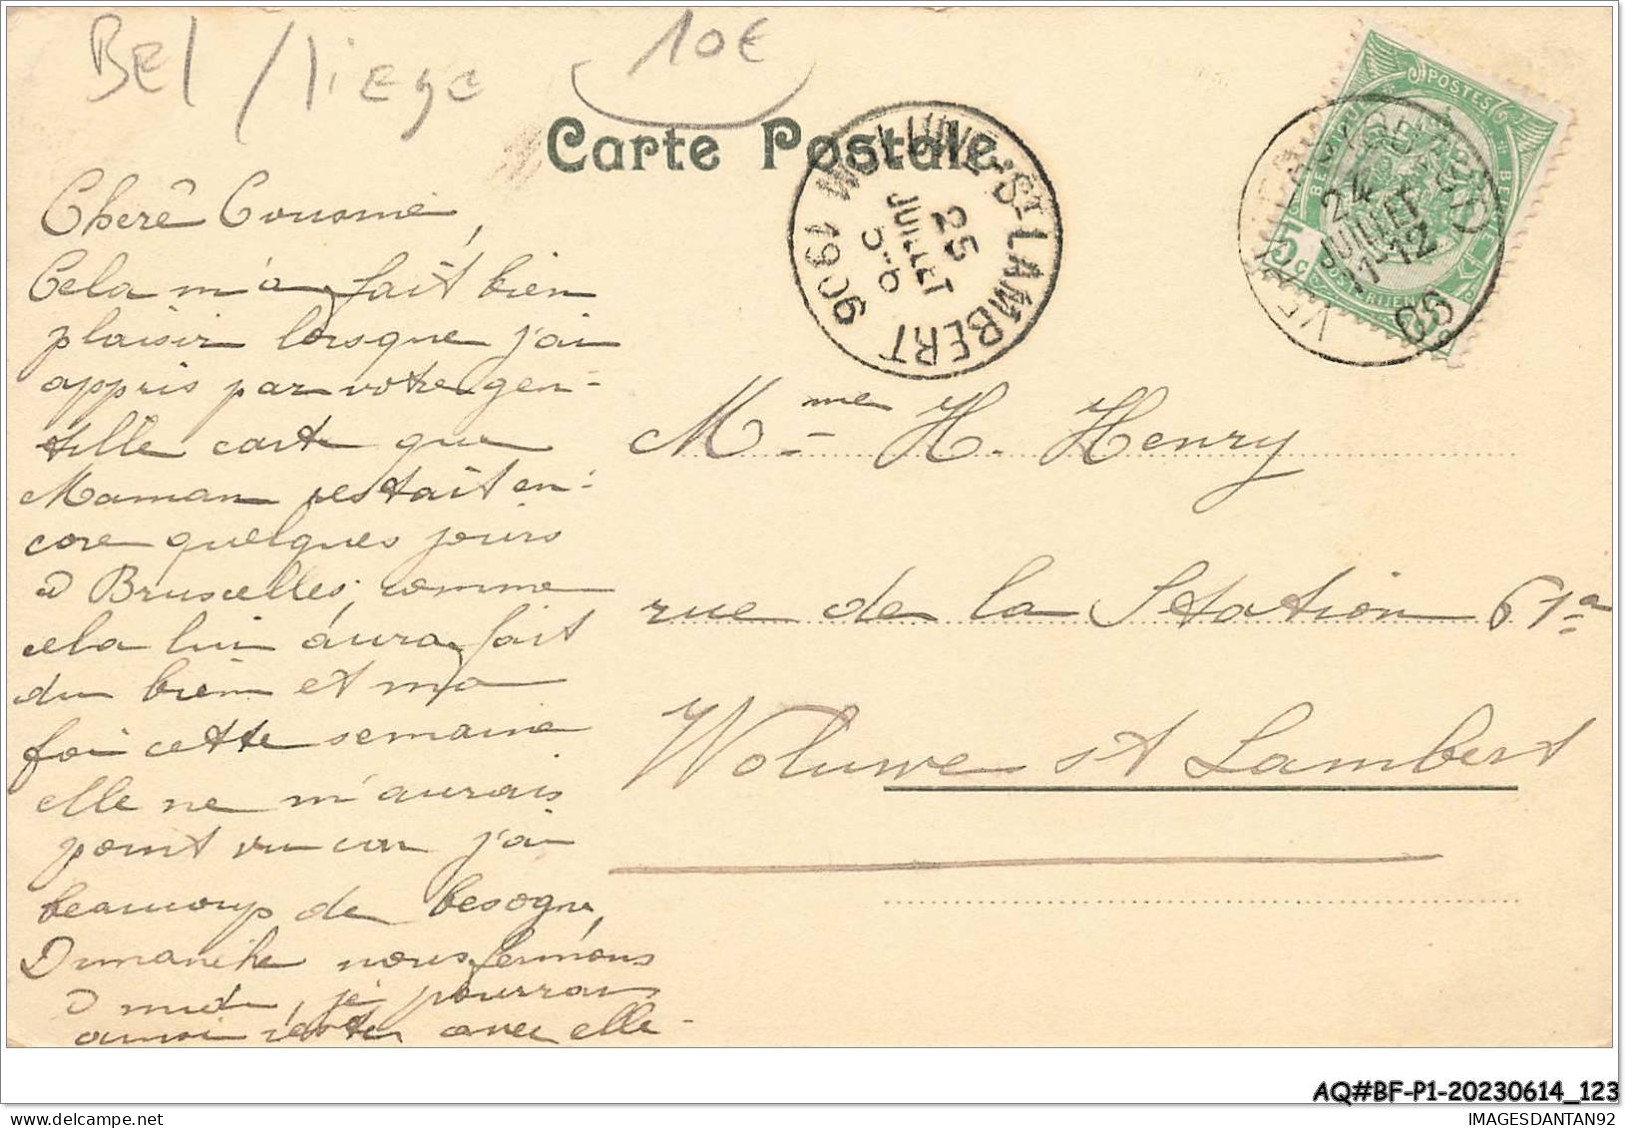 Bel / liege
10€
Carte Postale
WOLUWE-ST-LAMBERT
25
JUILLET
5-6
1906
POSTES
BELGIQUE
BELGIE
5c
POSTERIJEN
24
JUILLET
11-12
06
Chère Cousine,
Cela m'a fait bien
plaisir lorsque j'ai
appris par votre gen-
tille carte que
Maman restait en-
core quelques jours
à Bruxelles, comme
cela lui aura fait
du bien et ma
foi cette semaine
elle ne m'aurais
point vu car j'ai
beaucoup de besogne,
Dimanche nous fermons
à midi, je pourrais
ainsi rester avec elle-
Mme H. Henry
rue de la Station 61a
Woluwe st Lambert
AQ#BF-P1-20230614_123
IMAGESDANTAN92